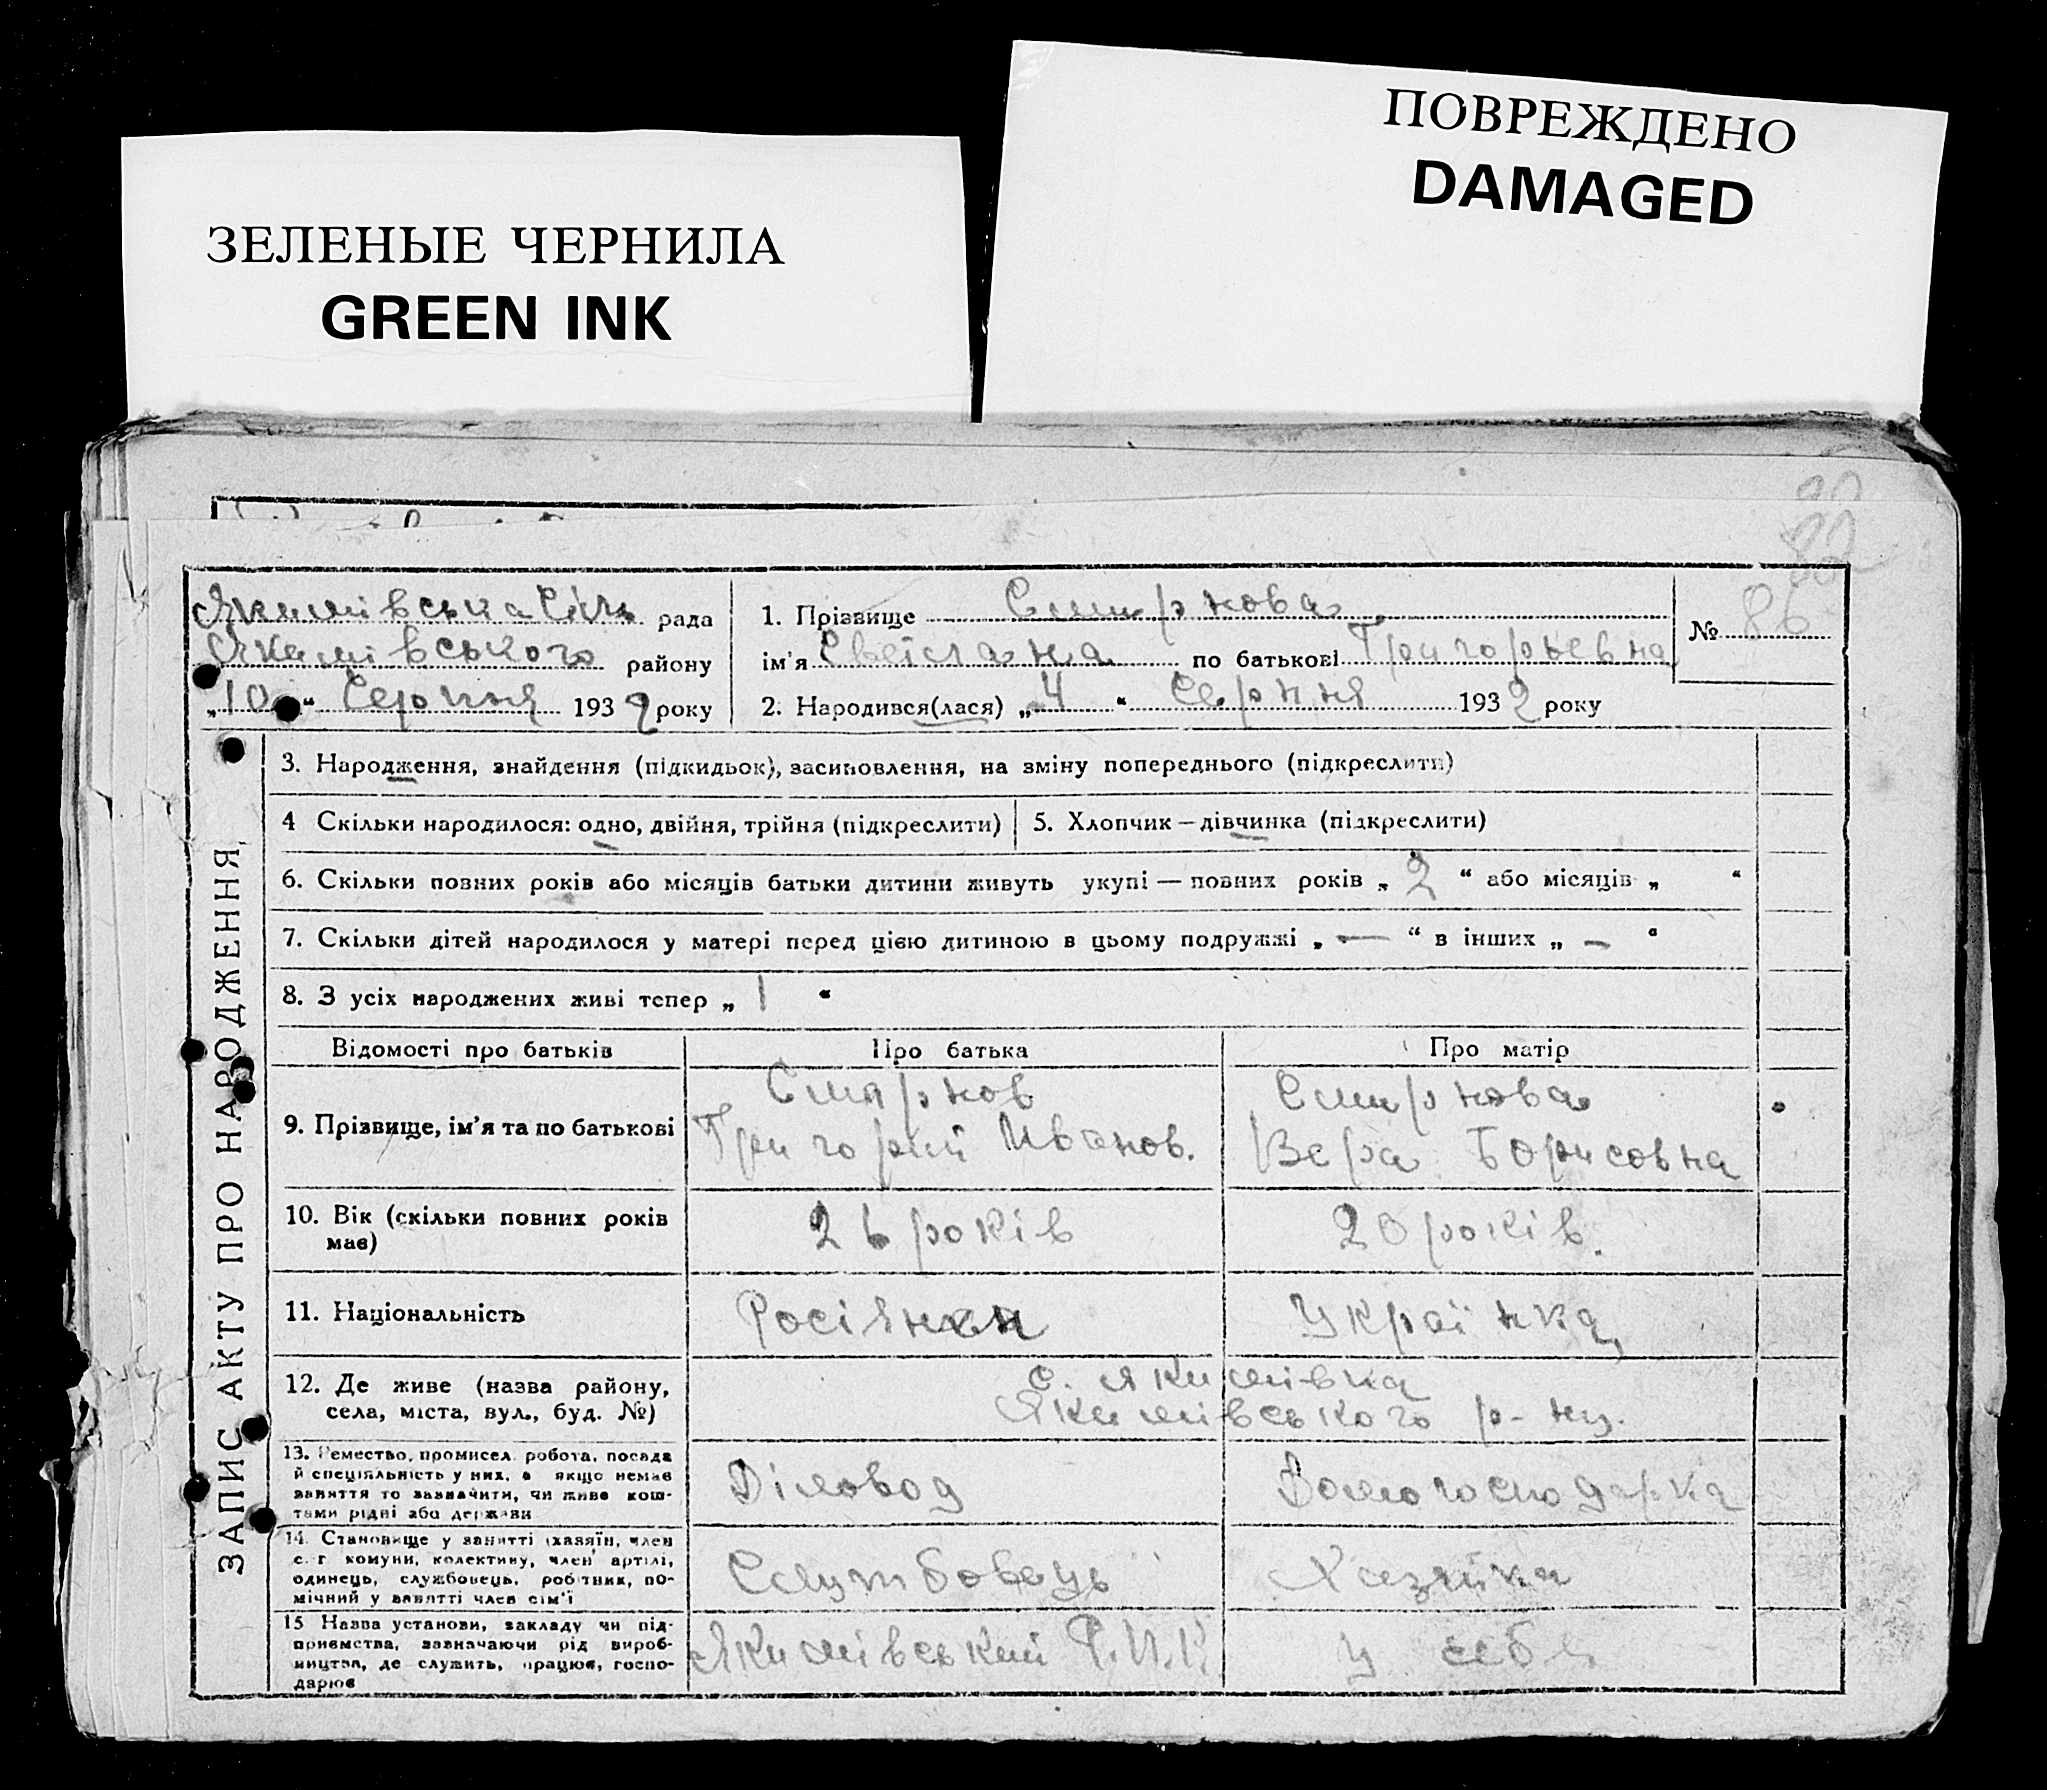 ПОВРЕЖДЕНО
DAMAGED
ЗЕЛЕНЫЕ ЧЕРНИЛА
GREEN INK
82
Якимівська Сіль рада
Якимівського району
„10“ Серпня 1932 року
1. Прізвище Смирнова
ім'я Свєтслана по батькові Григорьевна
2. Народився(лася) „4“ Серпня 1932 року
№ 86
ЗАПИС АКТУ ПРО НАРОДЖЕННЯ
3. Народження, знайдення (підкидьок), засиновлення, на зміну попереднього (підкреслити)
4 Скільки народилося: одно, двійня, трійня (підкреслити)
5. Хлопчик — дівчинка (підкреслити)
6. Скільки повних років або місяців батьки дитини живуть укупі — повних років „2“ або місяців „ “
7. Скільки дітей народилося у матері перед цією дитиною в цьому подружжі „—“ в інших „—“
8. З усіх народжених живі тепер „1“
Відомості про батьків
Про батька
Про матір
9. Прізвище, ім'я та по батькові
Смирнов
Григорий Иванов.
Смирнова
Вера Борисовна
10. Вік (скільки повних років
має)
26 років
20 років.
11. Національність
Українка
12. Де живе (назва району,
села, міста, вул., буд. №)
с. Якимівка
Якимівського р-ну.
13. Ремество, промисел, робота, посада
й спеціяльність у них, а якщо немає
заняття то зазначити, чи живе кош-
тами рідні або держави
Діловод
Домогосподарка
14. Становище у занятті (хазяїн, член
с.-г. комуни, колективу, член артілі,
одинець, службовець, робітник, по-
мічний у занятті член сім'ї
Службовець
Хазяйка
15 Назва установи, закладу чи під-
приємства, зазначаючи рід вироб-
ництва, де служить, працює, госпо-
дарює
Якимівський Р.И.К.
у себя